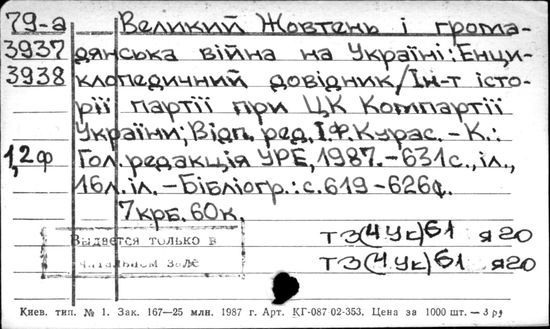 79-а Великий Жовтень і грома-
3937 дянська війна на Україні: Енци-
3938 клопедичний довідник/Ін-т істо-
рії партії при ЦК Компартії
України; Відп. ред. І.Ф.Курас. - К.:
1,2ф Гол. редакція УРЕ, 1987. - 631с., іл.,
16л. іл. - Бібліогр.: с. 619-626.
7крб. 60к.
Выдается только в
читальном зале
Т3(4Ук)61 я20
Т3(4Ук)61 я20
Киев. тип. № 1. Зак. 167—25 млн. 1987 г. Арт. КГ-087 02-353. Цена за 1000 шт. —